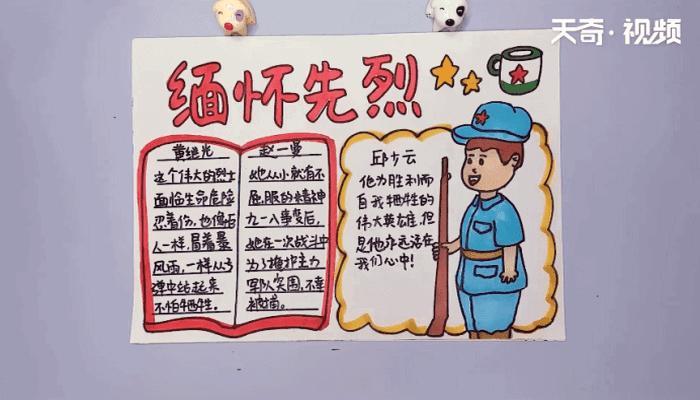 天奇·视频
缅怀先烈
黄继光
这个伟大的烈士
面临生命危险
忍着伤，也像石
人一样，冒着暴
风雨，一样从弓
弹中站起来
不怕牺牲.
赵一曼
她从小就有不
屈服的精神
九一八事变后，
她在一次战斗中
为了掩护主力
军队突围，不幸
被捕。
邱少云
他为胜利而
自我牺牲的
伟大英雄，但
是他永远活在
我们心中！